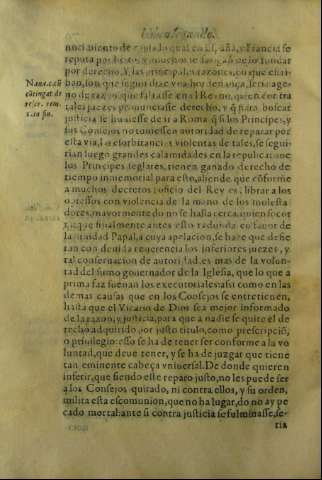 nocimiento de
por derecho, y las principales razones, en que estri-
ban, son que segun
no de razon, que faltasse en el Reyno, quien contra
tales juezes pronunciasse derecho, y q̃ para buscar
justicia se huuiesse de ir a Roma q̃ si los Principes, y
sus Consejos no tuuiessen autoridad de reparar por
esta via, las exorbitancias violentas de tales, se segui-
rian luego grandes calamidades en la republica: que
los Principes seglares, tienen ganado derecho de
tiempo inmemorial para esto, aliende que cõforme
a muchos decretos, oficio del Rey es, librar a los
opressos con violencia de la mano de los molesta
dores, mayormente do no se hallà cerca, quien socor
que finalmente antes esto redunda en fauor de
la dignidad Papal, a cuya apelacion, se haze que defie
ran con deuida reuerencia los inferiores juezes, y
tal conseruacion de autoridad, es mas de la volun-
tad del sumo gouernador de la Iglesia, que lo que a
prima faz suenan los executoriales assi como en las
de mas causas que en los Consejos se entretienen,
hasta que el Vicario de Dios sea mejor informado
de la razon, y justicia, para que a nadie se quite el de
recho adquirido por justo titulo, como prescripciõ,
o priuilegio: esso se ha de tener ser conforme a la vo
luntad, que deue tener, y se ha de juzgar que tiene
tan eminente cabeça vniuersal. De donde quieren
inferir, que siendo este reparo justo, no les puede ser
a los Consejos quitado, ni contra ellos, y su orden,
milita esta escomunion, que no ha lugar, do no ay pe
cado mortal: ante si contra justicia se fulminasse, se-
ria